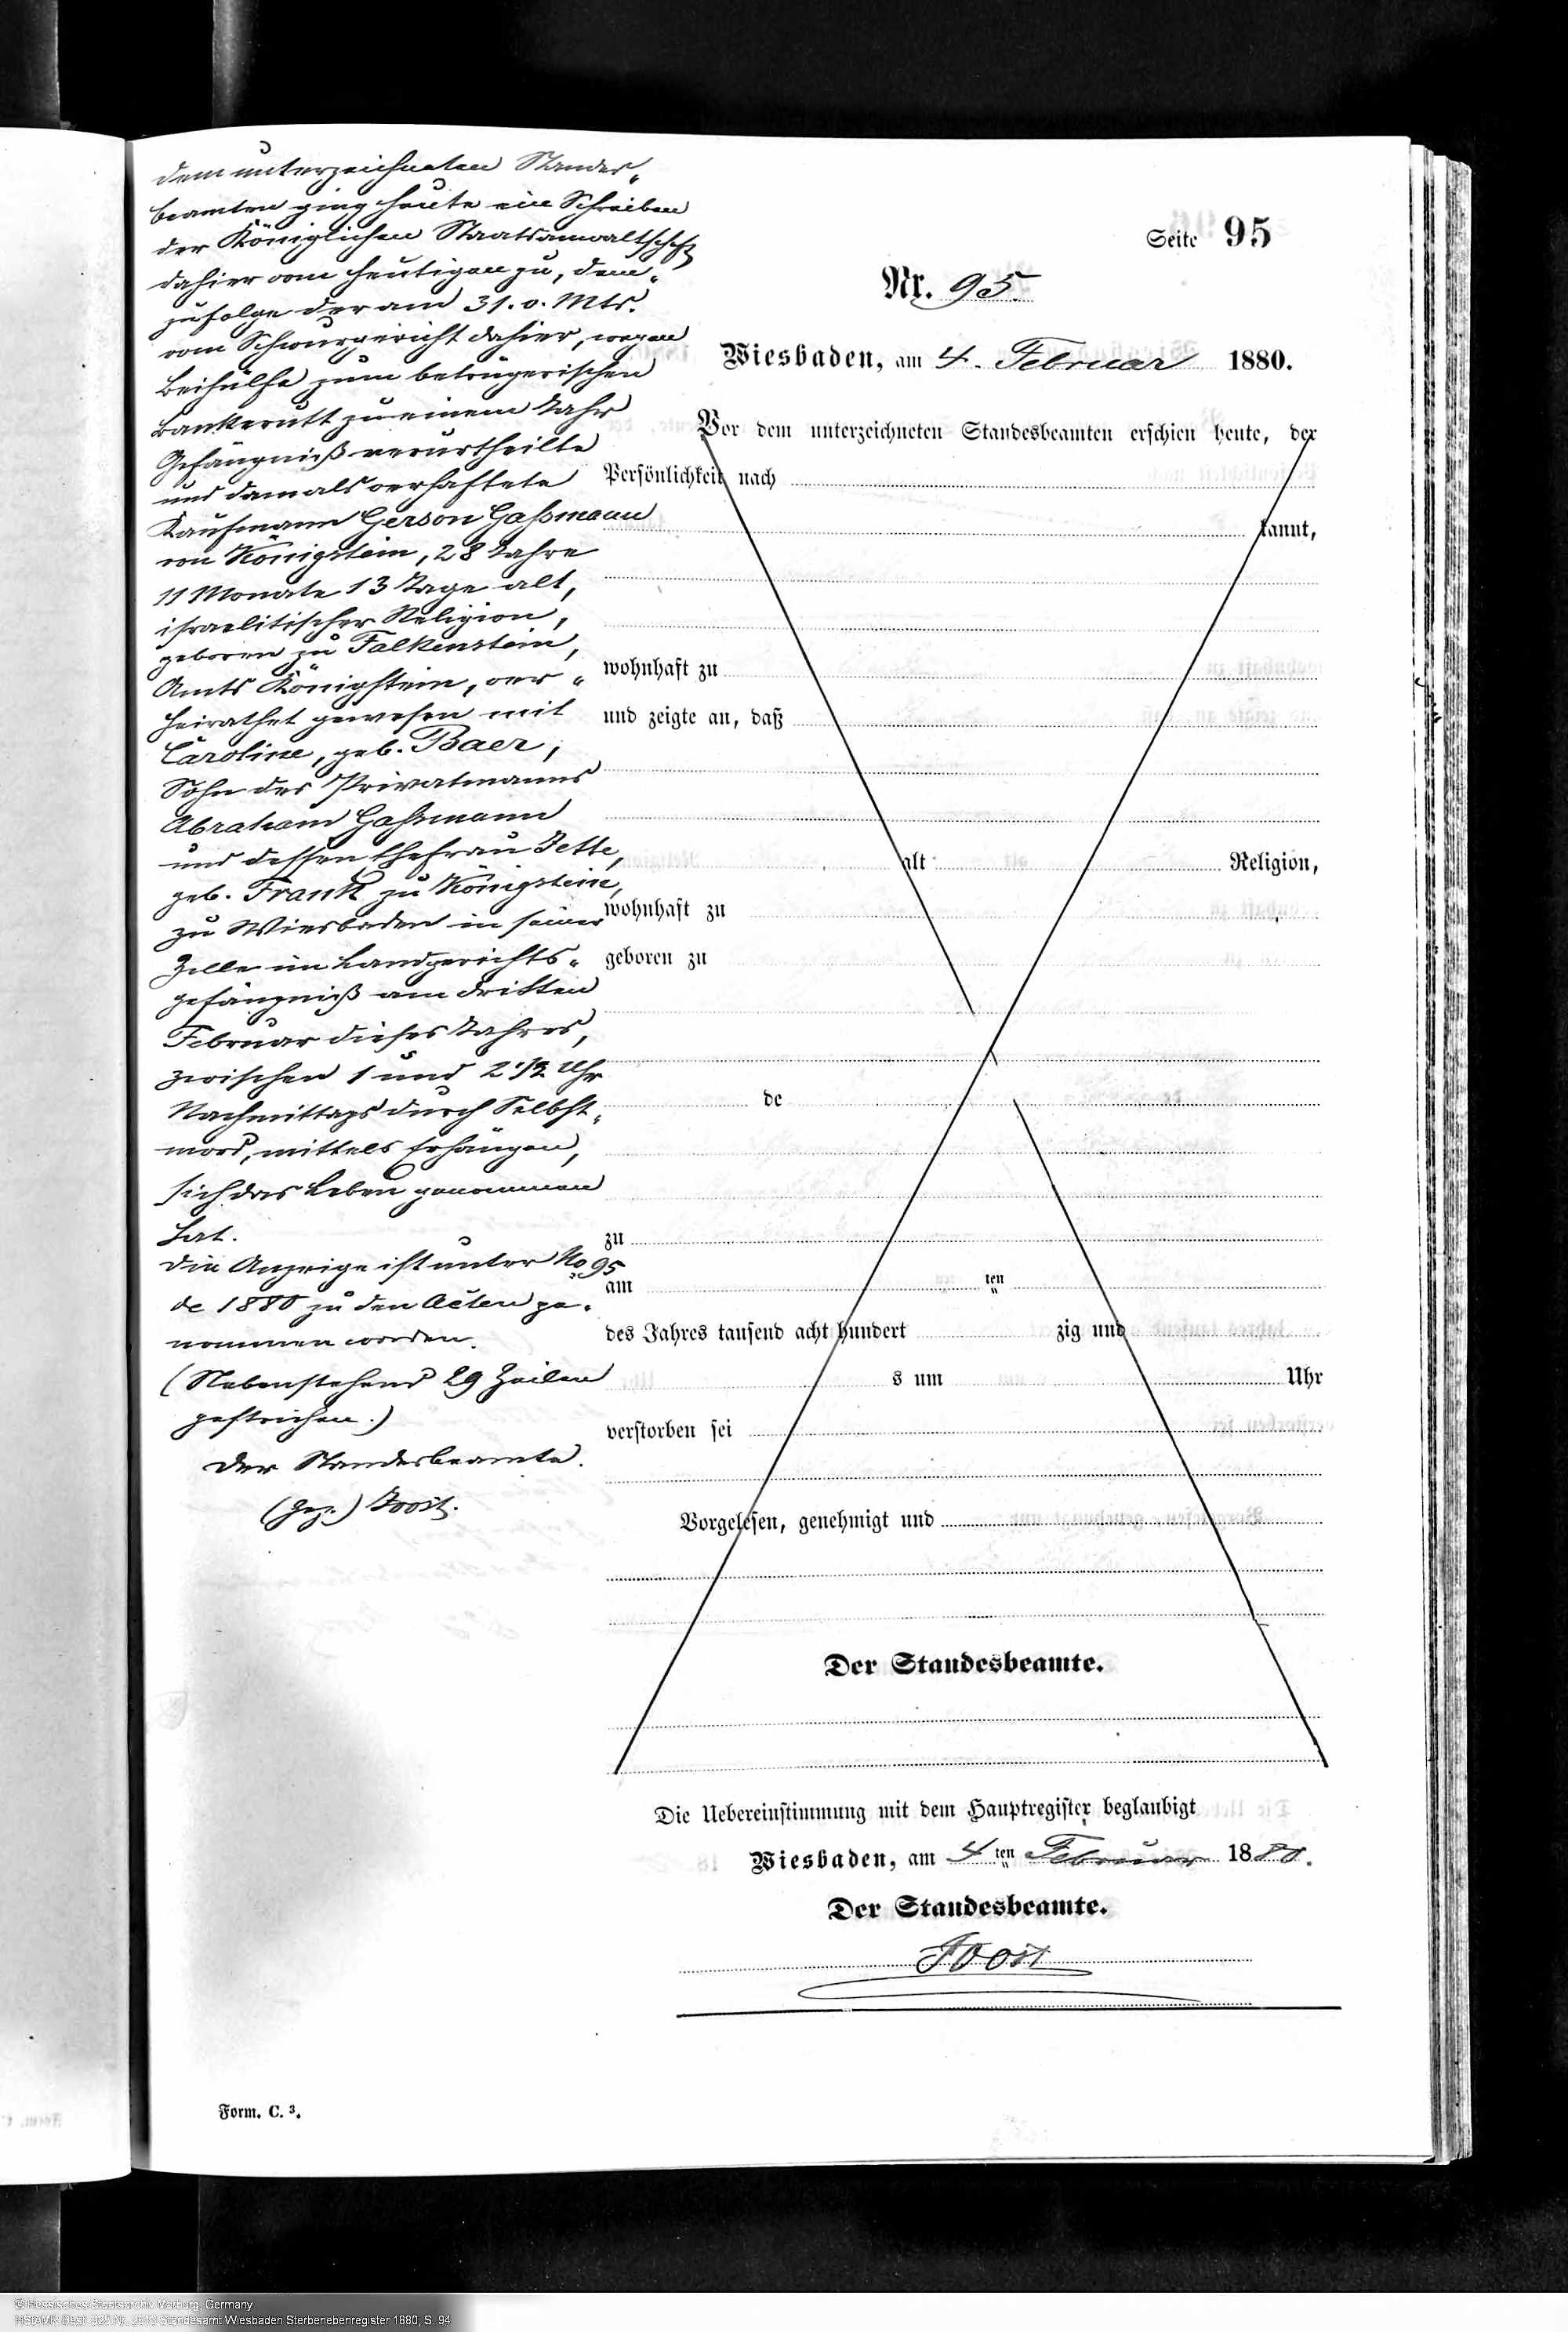 Seite 95
Nr. 95.
Wiesbaden, am 4. Februar 1880.
dem unterzeichneten Standes„
beamten ging heute ein Schreiben
der Königlichen Staatsanwaltschaft
dahier vom heutigen zu, dem„
zufolge der am 31. v. Mts.
vom Schwurgericht dahier, wegen
Beihülfe zum betrügerischen
Bankerutt zu einem Jahr
Gefängniß verurtheilte
und damals verhaftete
Kaufmann Gerson Gaßmann
von Königstein, 28 Jahre
11 Monate 13 Tage alt,
israelitischer Religion,
geboren zu Falkenstein,
Amts Königstein, ver„
heirathet gewesen mit
Caroline, geb. Baer,
Sohn des Privatmanns
Abraham Gaßmann
und dessen Ehefrau Jette,
geb. Frank zu Königstein,
zu Wiesbaden in seiner
Zelle im Landgerichts„
gefängniß am dritten
Februar dieses Jahres,
zwischen 1 und 2 1/2 Uhr
Nachmittags durch Selbst„
mord, mittels Erhängen,
sich das Leben genommen
hat.
Die Anzeige ist unter No 95
de 1880 zu den Acten ge„
nommen worden.
(Nebenstehend 29 Zeilen
gestrichen.)
Der Standesbeamte.
(gez.) Joost.
Vor dem unterzeichneten Standesbeamten erschien heute, der
Persönlichkeit nach
kannt,
wohnhaft zu
und zeigte an, daß
alt Religion,
wohnhaft zu
geboren zu
de
zu
am ten
des Jahres tausend acht hundert zig und
s um Uhr
verstorben sei
Vorgelesen, genehmigt und
Der Standesbeamte.
Die Uebereinstimmung mit dem Hauptregister beglaubigt
Wiesbaden, am 4 ten Februar 1880.
Der Standesbeamte.
Joost
Form. C. 3.
© Hessisches Staatsarchiv Marburg, Germany
HStAMR Best. 925 Nr. Standesamt Wiesbaden Sterbenebenregister 1880, S. 94